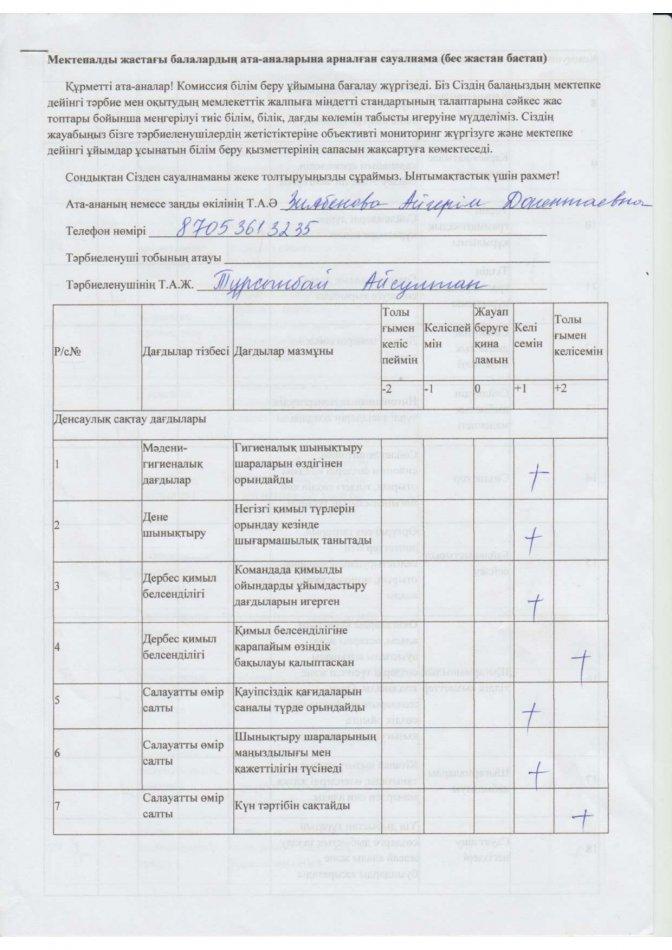 Мектепалды жастағы балалардың ата-аналарына арналған сауалнама (бес жастан бастап)
Құрметті ата-аналар! Комиссия білім беру ұйымына бағалау жүргізеді. Біз Сіздің балаңыздың мектепке
дейінгі тәрбие мен оқытудың мемлекеттік жалпыға міндетті стандартының талаптарына сәйкес жас
топтары бойынша меңгерілуі тиіс білім, білік, дағды көлемін табысты игеруіне мүдделіміз. Сіздің
жауабыңыз бізге тәрбиеленушілердің жетістіктеріне объективті мониторинг жүргізуге және мектепке
дейінгі ұйымдар ұсынатын білім беру қызметтерінің сапасын жақсартуға көмектеседі.
Сондықтан Сізден сауалнаманы жеке толтыруыңызды сұраймыз. Ынтымақтастық үшін рахмет!
Ата-ананың немесе заңды өкілінің Т.А.Ә Зиябенова Айгерім Докентаевна
Телефон нөмірі 87053613235
Тәрбиеленуші тобының атауы
Тәрбиеленушінің Т.А.Ж. Тұрсынбай Айсултан
Р/с№ Дағдылар тізбесі Дағдылар мазмұны Толы ғымен келіс пеймін Келіспей мін Жауап беруге қина ламын Келі семін Толы ғымен келісемін
-2 -1 0 +1 +2
Денсаулық сақтау дағдылары
1 Мәдени-гигиеналық дағдылар Гигиеналық шынықтыру шараларын өздігінен орындайды +
2 Дене шынықтыру Негізгі қимыл түрлерін орындау кезінде шығармашылық танытады +
3 Дербес қимыл белсенділігі Командада қимылды ойындарды ұйымдастыру дағдыларын игерген +
4 Дербес қимыл белсенділігі Қимыл белсенділігіне қарапайым өзіндік бақылауы қалыптасқан +
5 Салауатты өмір салты Қауіпсіздік қағидаларын саналы түрде орындайды +
6 Салауатты өмір салты Шынықтыру шараларының маңыздылығы мен қажеттілігін түсінеді +
7 Салауатты өмір салты Күн тәртібін сақтайды +